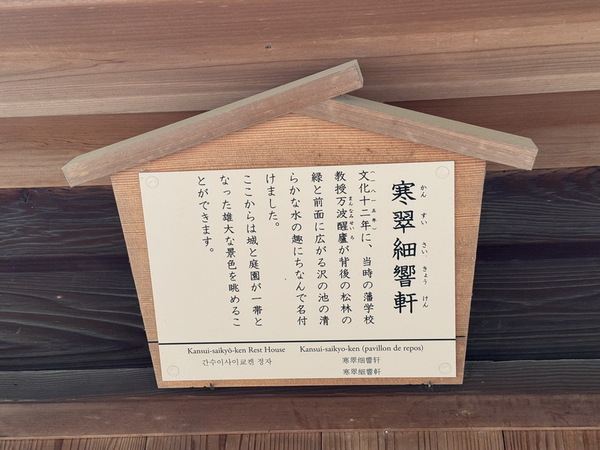 寒翠細響軒
かんすいさいきょうけん
文化十二年に、当時の藩学校
(一八一五年)
教授万波醒廬が背後の松林の
まんなみせいろ
緑と前面に広がる沢の池の清
らかな水の趣にちなんで名付
けました。
ここからは城と庭園が一帯と
なった雄大な景色を眺めるこ
とができます。
Kansui-saikyō-ken Rest House
간수이사이쿄켄 정자
Kansui-saikyo-ken (pavillon de repos)
寒翠细响轩
寒翠細響軒